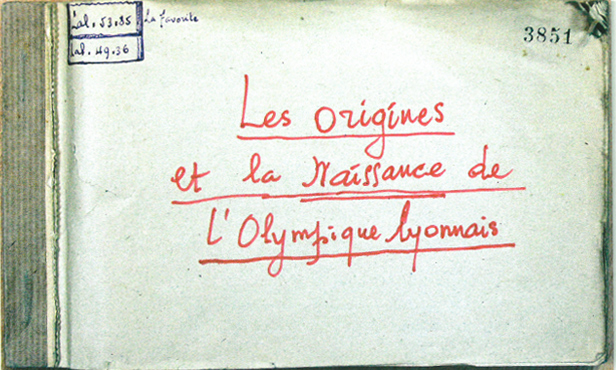 Lal. 53.85 La favorite
Lal. 49.36
3851
Les origines
et la Naissance de
l'Olympique lyonnais